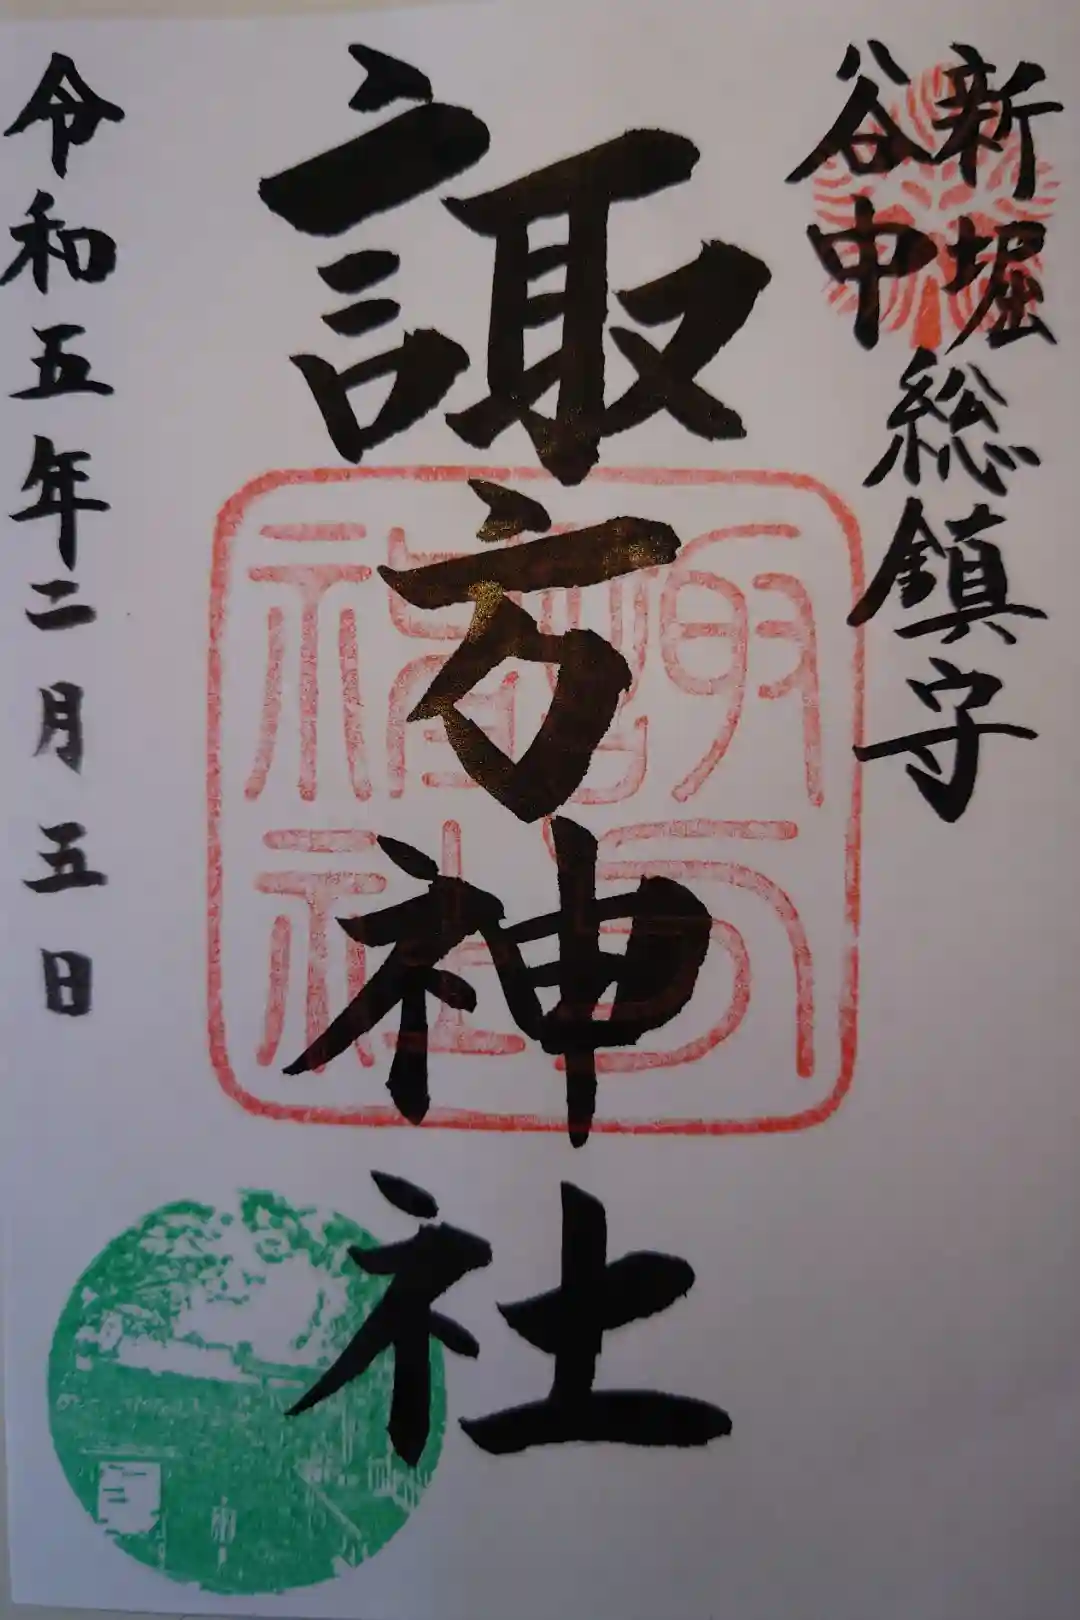 新堀
谷中
総鎮守
諏方神社
令和五年二月五日